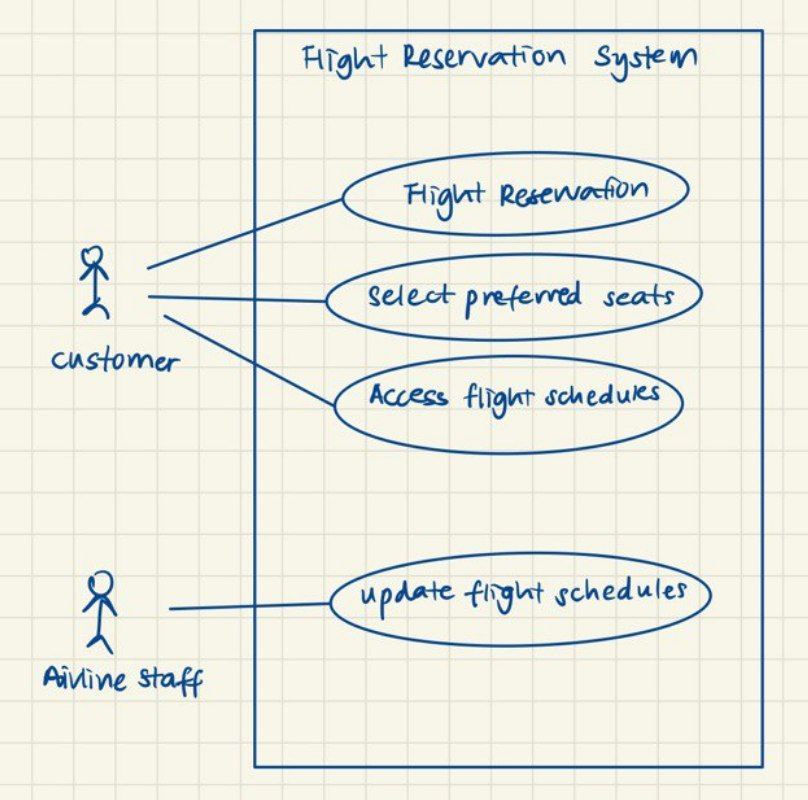 Flight Reservation System
Flight Reservation
Select preferred seats
Access flight schedules
customer
update flight schedules
Airline staff